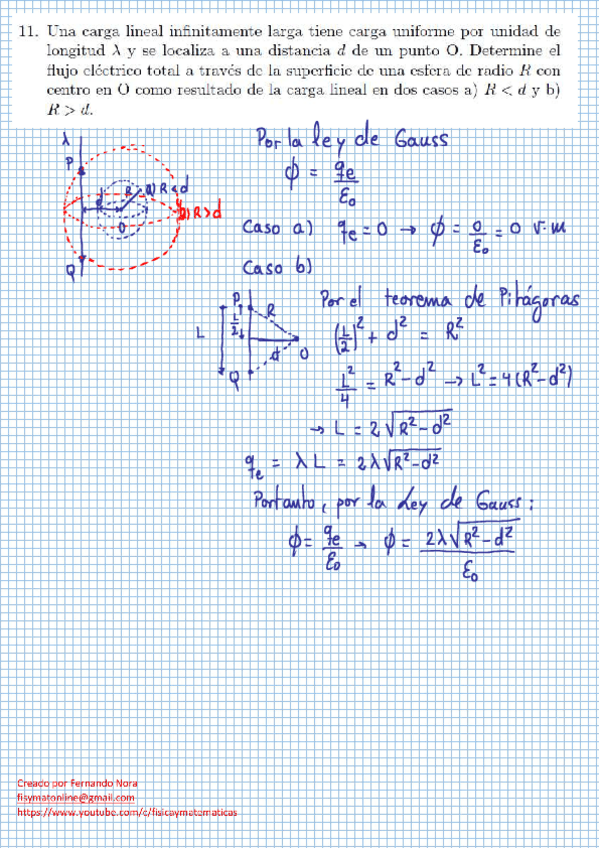 11. Una carga lineal infinitamente larga tiene carga uniforme por unidad de
longitud λ y se localiza a una distancia d de un punto O. Determine el
flujo eléctrico total a través de la superficie de una esfera de radio R con
centro en O como resultado de la carga lineal en dos casos a) R < d y b)
R > d.
Por la ley de Gauss
ϕ = qe/ε0
λ
P
d
R
a) R < d
b) R > d
O
Q
Caso a) qe = 0 → ϕ = 0/ε0 = 0 V·m
Caso b)
P
L/2
R
L
d
O
Q
Por el teorema de Pitágoras
(L/2)² + d² = R²
L²/4 = R² - d² → L² = 4(R² - d²)
→ L = 2√(R² - d²)
qe = λL = 2λ√(R² - d²)
Por tanto, por la Ley de Gauss:
ϕ = qe/ε0 → ϕ = 2λ√(R² - d²)/ε0
Creado por Fernando Nora
fisymatonline@gmail.com
https://www.youtube.com/c/fisicaymatematicas